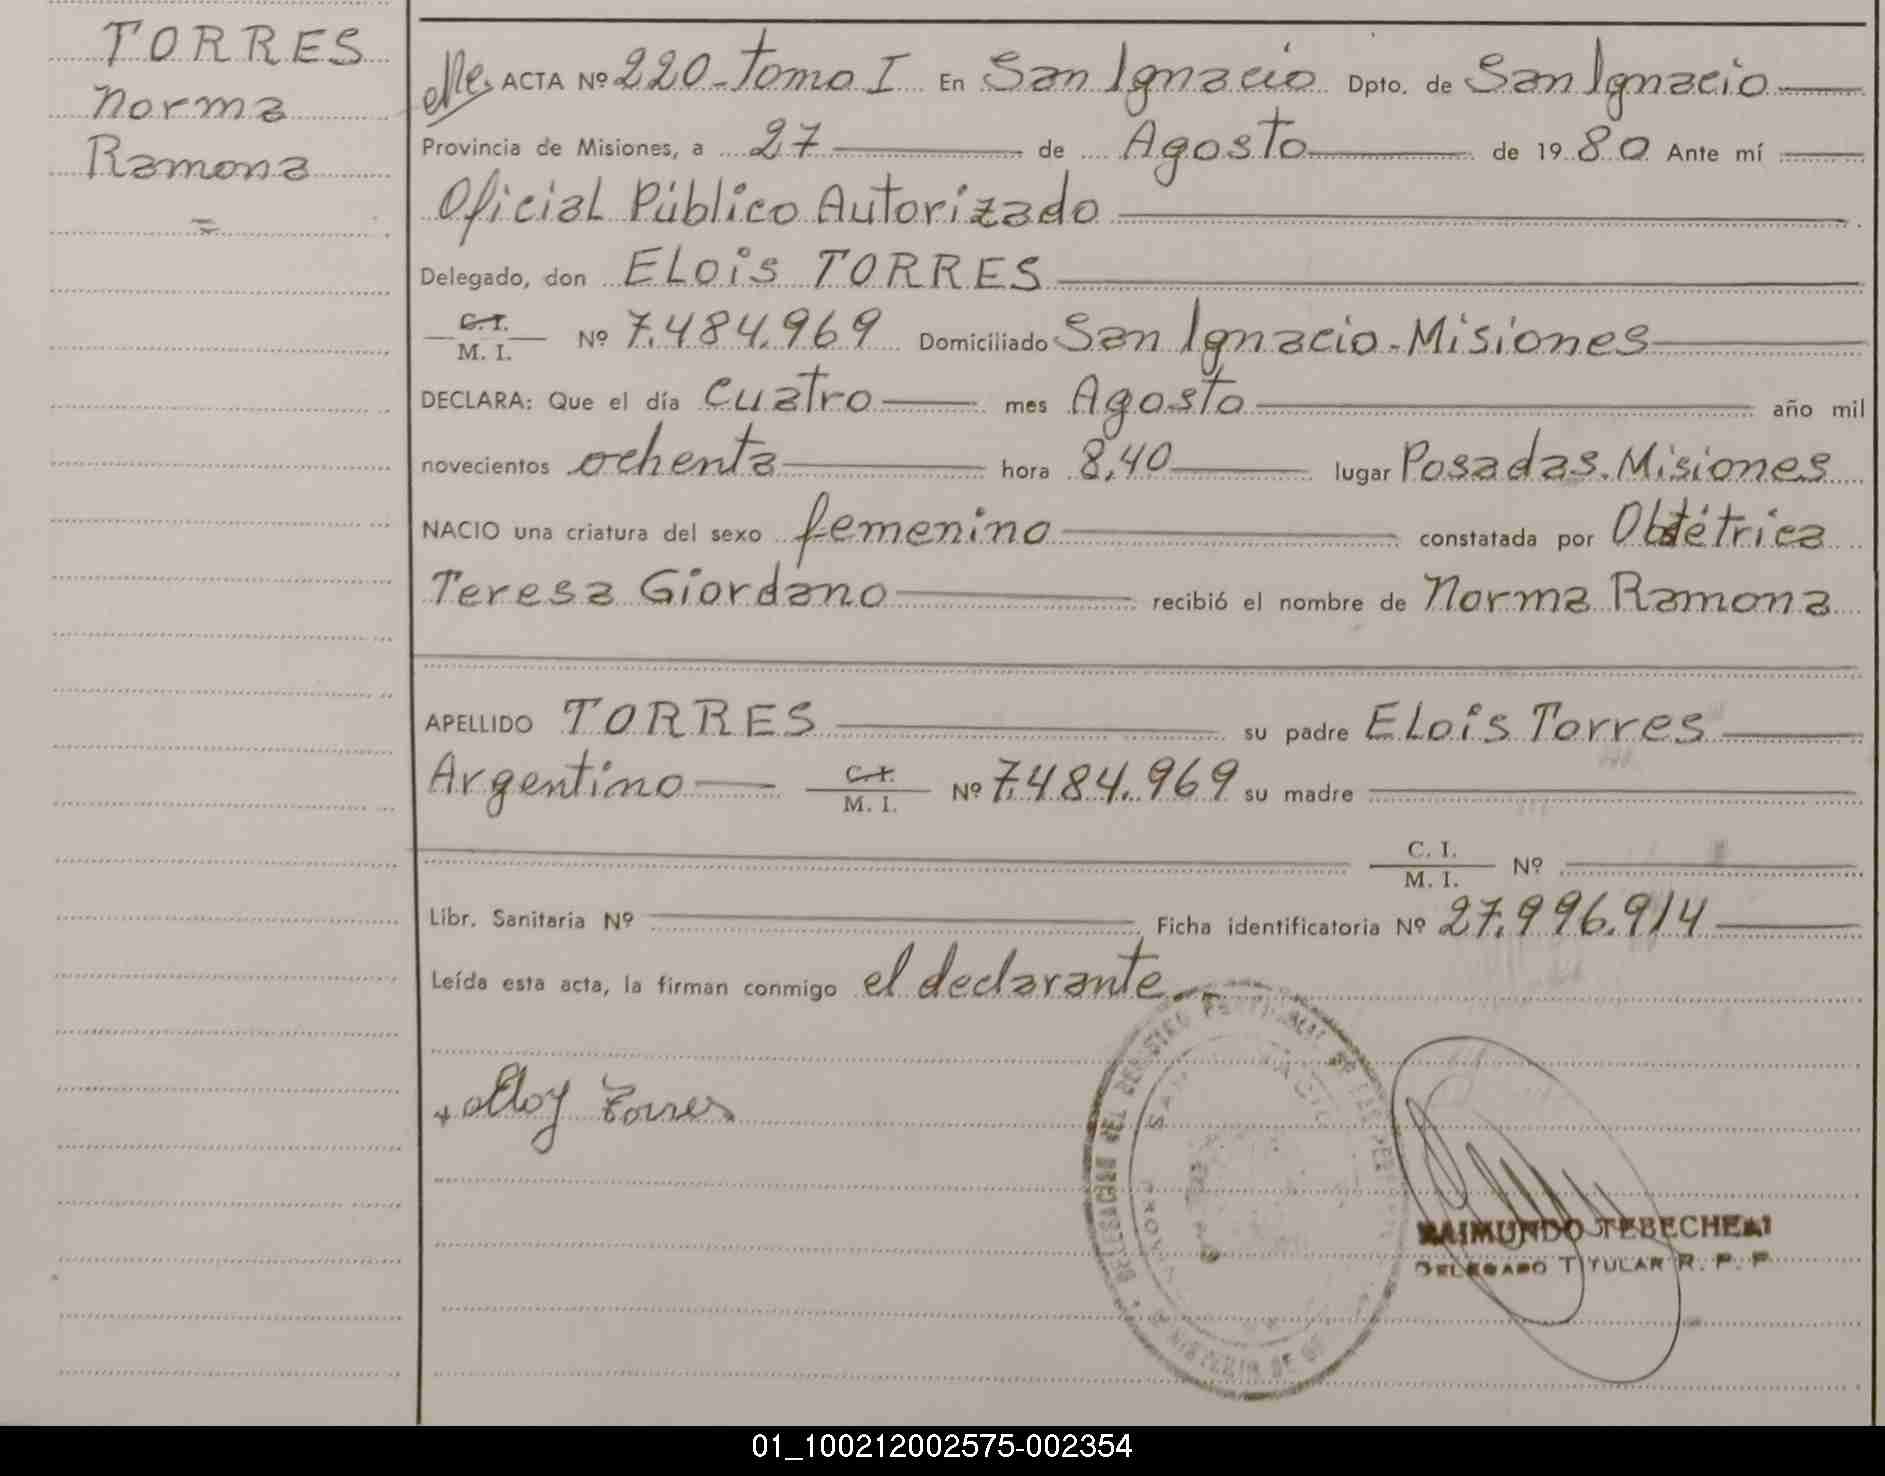 TORRES
Norma
Ramona
ACTA Nº 220-Tomo I En San Ignacio Dpto. de San Ignacio
Provincia de Misiones, a 27 de Agosto de 1980 Ante mí
Oficial Público Autorizado
Delegado, don ELois TORRES
C.I.
M. I. Nº 7.484.969 Domiciliado San Ignacio-Misiones
DECLARA: Que el día cuatro mes Agosto año mil
novecientos ochenta hora 8,40 lugar Posadas.Misiones
NACIO una criatura del sexo femenino constatada por Obstétrica
Teresa Giordano recibió el nombre de Norma Ramona
APELLIDO TORRES su padre ELois Torres
Argentino C.I.
M. I. Nº 7.484.969 su madre
C. I.
M. I. Nº
Libr. Sanitaria Nº Ficha identificatoria Nº 27.996.914
Leída esta acta, la firman conmigo el declarante.-
Eloy Torres
RAIMUNDO TEBECHERI
DELEGADO TITULAR R. P. P.
01_100212002575-002354